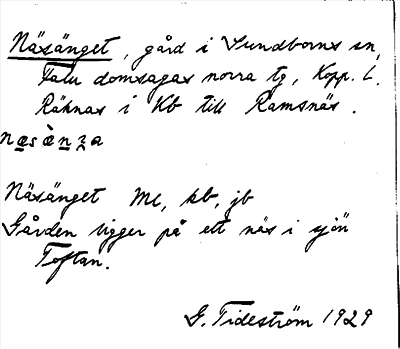 Näsänget, gård i Sundborns sn,
Falu domsagas norra tg, Kopp. L.
Räknas i Kb till Ramsnäs.
Näsänget Me, kb, jb
Gården ligger på ett näs i sjön
Toftan.
G. Tideström 1929